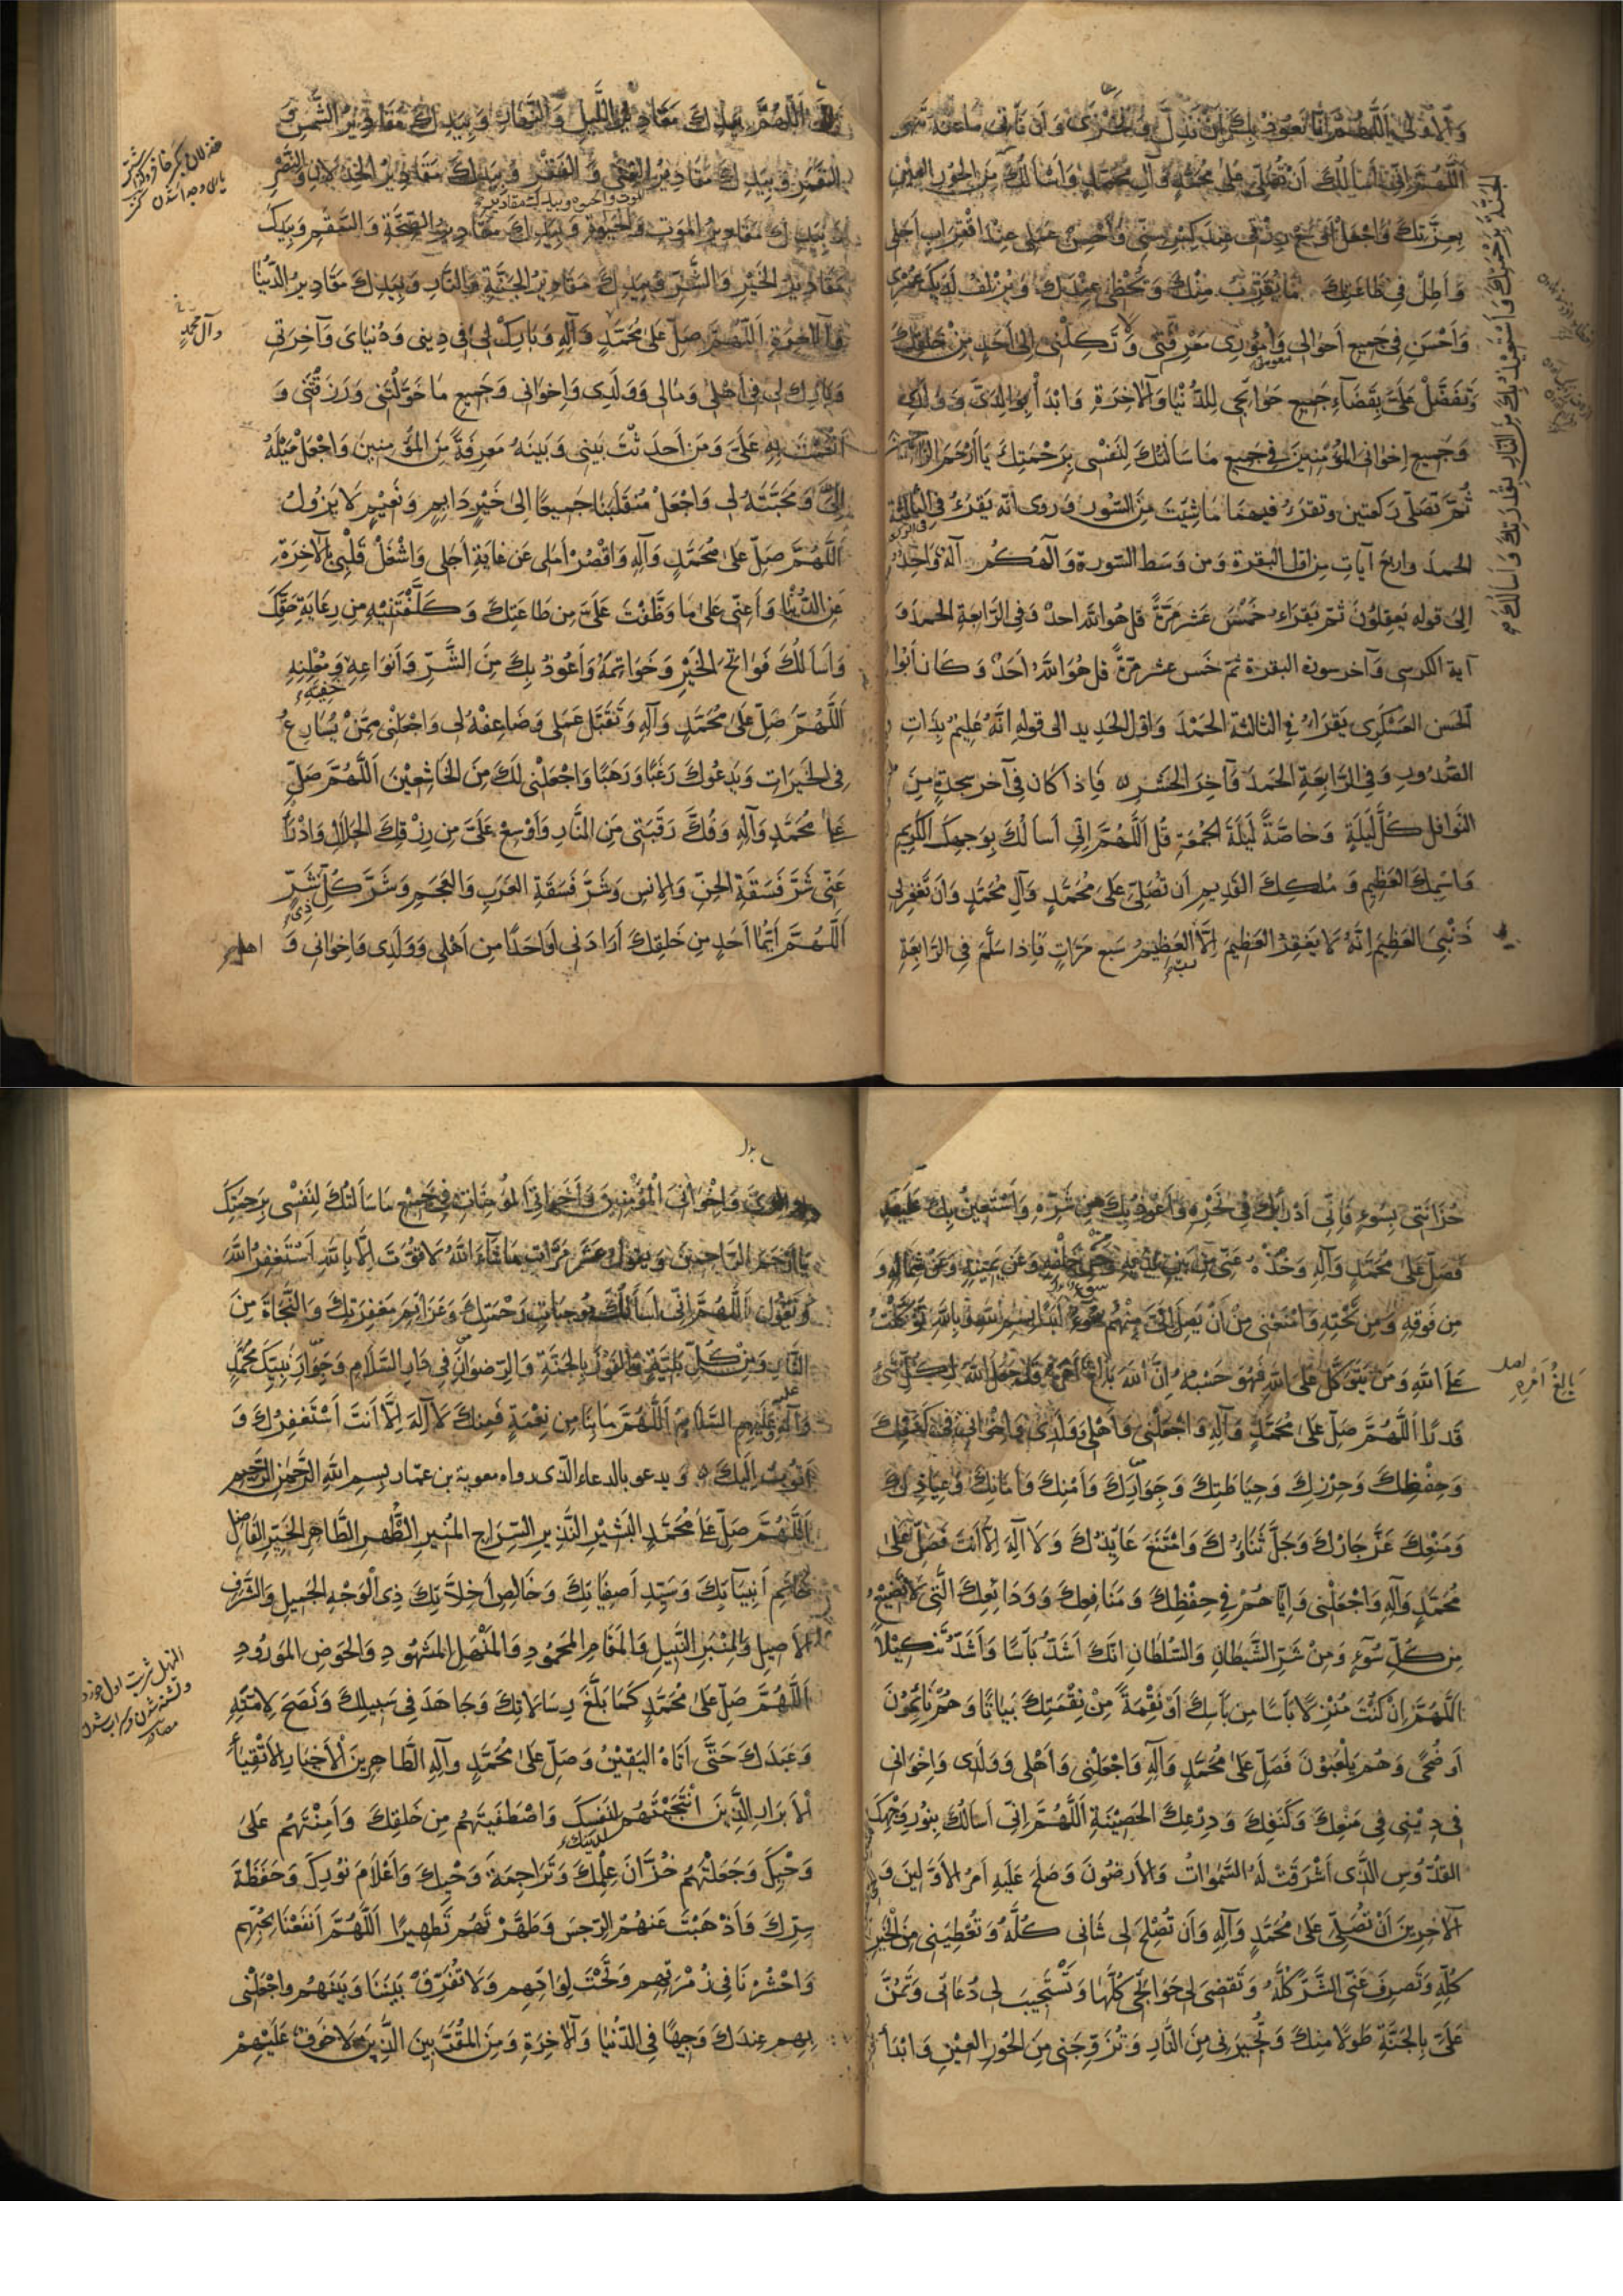 وَالأُولى اَللّهُمَّ اِنّا نَعُوذُ بِكَ اَنْ نَذِلَّ وَنَخْزى وَاَنْ نَأتِىَ ما عَنْهُ تَنْهى
اَللّهُمَّ اِنّى اَسْاَلُكَ اَنْ تُصَلِّىَ عَلى مُحَمَّدٍ وَآلِ مُحَمَّدٍ وَاَسْاَلُكَ مِنَ الْحُورِ الْعِيْنِ
بِعِزَّتِكَ وَاجْعَلْ اَوْسَعَ رِزْقى عِنْدَ كِبَرِ سِنّى وَاَحْسَنَ عَمَلى عِنْدَ اقْتِرابِ اَجَلى
وَاَطِلْ فى طاعَتِكَ مَا يُقَرِّبُ مِنْكَ وَيُحْظى عِنْدَكَ وَيُزْلِفُ لَدَيكَ عُمْرى
وَاَحْسِنْ فى جَميعِ اَحْوالى وَاُمُورى مَعْرِفَتى وَلَا تَكِلْنى اِلى اَحَدٍ مِنْ خَلْقِكَ
معونتى
وَتَفَضَّلْ عَلَىَّ بِقَضَاءِ جَميعِ حَوَائِجى لِلدُّنْيا وَالآخِرَةِ وَابْدَأْ بِوَالِدَىَّ وَوُلْدى
وَجَميعِ اِخْوانىَ المُؤْمِنينَ فى جَميعِ مَا سَاَلْتُكَ لِنَفْسى بِرَحْمَتِكَ يَا اَرْحَمَ الرّاحمين
ثُمَّ تُصَلّى رَكعتين وتقرءُ فيهِمَا مَا شِئتَ مِنَ السُّوَر وَروى انّه يَقرَءُ فى الثالثة
الحمدَ واربعَ آياتٍ مِن اوّل البقرة وَمن وَسَط السّورة وَآلٰهُكُمْ آلهٌ وَاحِدٌ
اِلى قوله يَعقِلُونَ ثمّ يَقرَاءُ خَمْسَ عَشرَ مَرّةً قل هُوَ اللّه احدٌ وَفى الرّابعَةِ الحمدَ وَ
آية الكرسى وَآخر سورة البقرة ثمّ خَمس عشر مرّةً قل هُوَ اللهُ اَحَدٌ وَكَانَ اَبُوا
الحَسَن العَسْكَرى يَقرَاءُ فى الثالثة الحَمْدَ وَاوّل الحديد الى قوله اِنَّهُ عَلِيمٌ بِذَاتِ
الصُّدُورِ وَفى الرّابعَةِ الحَمدَ وَآخِرَ الحَشر فَاِذا كَان فى آخر سجدةٍ مِنَ
النَّوافل كُلَّ لَيلَةٍ وَخَاصَّةً لَيلَةَ الجُمُعَةِ قُل اَللَّهُمَّ اِنّى اَسْاَلُكَ بِوَجهِكَ الكَرِيم
وَاسمِكَ العَظِيمِ وَمُلكِكَ القَدِيمِ اَن تُصَلِّىَ عَلى مُحَمَّدٍ وَآلِ مُحَمَّدٍ وَاَن تَغفِرَلى
ذَنْبِىَ العَظِيمَ اِنَّهُ لَا يَغفِرُ العَظِيمَ اِلَّا العَظِيمُ سَبع مَرّاتٍ فَاِذا سَلَّمَ فى الرّابعَةِ
الجَنَّةَ بِرَحْمَتِكَ وَاَسْتَعِيذُ بِكَ مِنَ النَّارِ بِقُدرَتِكَ وَاَسْاَلُكَ
اَللّهُمَّ بِيَدِكَ مَقَادِيرُ اللَّيلِ وَالنَّهَارِ وَبِيَدِكَ مَقَادِيرُ الشَّمسِ وَ
القَمَرِ وَبِيَدِكَ مَقَادِيرُ الغِنى وَالفَقْرِ وَبِيَدِكَ مَقَادِيرُ الخِذلَانِ وَالنَّصْرِ
وَبِيَدِكَ مَقَادِيرُ المَوتِ وَالحَيوةِ وَبِيَدِكَ مَقَادِيرُ الصِّحَّةِ وَالسَّقْمِ وَبِيَدِكَ
مَقَادِيرُ الخَيْرِ وَالشَّرِّ وَبِيَدِكَ مَقَادِيرُ الجَنَّةِ وَالنَّارِ وَبِيَدِكَ مَقَادِيرُ الدُّنيَا
وَالآخِرَةِ اَللّهُمَّ صَلِّ عَلى مُحَمَّدٍ وَآلِهِ وَبَارِكْ لى فى دِينى وَدُنيَاىَ وَآخِرَتى
وآل محمّدٍ
وَبَارِك لى فى اَهْلى وَمَالى وَوَلَدى وَاِخوَانى وَجَمِيعِ مَا خَوَّلْتَنى وَرَزَقْتَنى وَ
اَنْعَمْتَ بِهِ عَلَىَّ وَمَن اَحدَثْتَ بَينى وَبَينَهُ مَعرِفَةً مِنَ المُؤمِنِينَ وَاجْعَلْ مَيْلَهُ
اِلَىَّ وَمَحَبَّتَهُ لى وَاجْعَلْ مُنقَلَبَنَا جَمِيعًا اِلى خَيْرٍ دَايِمٍ وَنَعِيمٍ لَا يَزُولُ
اَللّهُمَّ صَلِّ عَلى مُحَمَّدٍ وَآلِهِ وَاقْصُرْ اَمَلى عَن غَايَةِ اَجَلى وَاشْغَلْ قَلْبى بِالآخِرَةِ
عَنِ الدُّنْيَا وَاَعِنّى عَلى مَا وَظَّفْتَ عَلَىَّ مِن طَاعَتِكَ وَكَلَّفْتَنِيهِ مِن رِعَايَةِ حَقِّكَ
وَاَسَالُكَ فَوَاتِحَ الخَيْرِ وَخَوَاتِمَهُ وَاَعُوذُ بِكَ مِنَ الشَّرِّ وَاَنوَاعِهِ وَمُعْلَنِهِ
خَفِيِّه
اَللّهُمَّ صَلِّ عَلى مُحَمَّدٍ وَآلِهِ وَتَقَبَّل عَمَلى وَضَاعِفْهُ لى وَاجْعَلْنى مِمَّنْ يُسَارِعُ
فى الخَيرَاتِ وَيَدعُوكَ رَغَبًا وَرَهَبًا وَاجْعَلْنى لَكَ مِنَ الخَاشِعِيْنَ اَللّهُمَّ صَلِّ
عَلى مُحَمَّدٍ وَآلِهِ وَفُكَّ رَقَبَتى مِنَ النَّارِ وَاَوسِعْ عَلَىَّ مِن رِزْقِكَ الحَلَالِ وَادْرَأْ
عَنّى شَرَّ فَسَقَةِ الجِنِّ وَالاِنسِ وَشَرَّ فَسَقَةِ العَرَبِ وَالعَجَمِ وَشَرَّ كُلِّ شَرٍّ
ذى
اَللّهُمَّ اَيُّمَا اَحَدٍ مِن خَلقِكَ اَرَادَنى اَو اَحَدًا مِن اَهْلى وَوَلَدى وَاِخوَانى وَ
حُزَانَتى بِسُوءٍ فَاِنّى اَدْرَأُ بِكَ فى نَحْرِهِ وَاَعُوذُ بِكَ مِن شَرِّهِ وَاَسْتَعِينُ بِكَ عَلَيهِ
فَصَلِّ عَلى مُحَمَّدٍ وَآلِهِ وَخُذْهُ عَنّى مِن بَينِ يَدَيهِ وَمِن خَلْفِهِ وَعَن يَمِينِهِ وَعَن شِمَالِهِ وَ
مِن فَوقِهِ وَمِن تَحْتِهِ وَامْنَعْنى مِنْ اَنْ يَصِلَ اِلَىَّ مِنْهُ سُوءٌ اَبَدًا بِسمِ اللّهِ وَبِاللّهِ تَوَكَّلْتُ
عَلَى اللّهِ وَمَن يَتَوَكَّل عَلى اللّهِ فَهُوَ حَسْبُهُ اِنَّ اللّهَ بَالِغُ اَمْرِهِ قَد جَعَلَ اللّهُ لِكُلِّ شَىْءٍ
بَالِغُ اَمْرِهِ
قَدرًا اَللّهُمَّ صَلِّ عَلى مُحَمَّدٍ وَآلِهِ وَاجْعَلْنى وَاَهْلى وَوَلَدى وَاِخوَانى فى كَنَفِكَ
وَحِفْظِكَ وَحِرْزِكَ وَحِيَاطَتِكَ وَجِوَارِكَ وَاَمْنِكَ وَاَمَانِكَ وَعِيَاذِكَ
وَمَنْعِكَ عَزَّ جَارُكَ وَجَلَّ ثَنَاؤُكَ وَامْتَنَعَ عَايِذُكَ وَلَا آلِهَ اِلَّا اَنتَ فَصَلِّ عَلى
مُحَمَّدٍ وَآلِهِ وَاجْعَلْنى وَاِيَّاهُمْ فى حِفْظِكَ وَمَنَافِعِكَ وَوَدَائِعِكَ الَّتى لَا تَضِيْعُ
مِن كُلِّ سُوءٍ وَمِنْ شَرِّ الشَّيْطَانِ وَالسُّلْطَانِ اِنَّكَ اَشَدُّ بَأسًا وَاَشَدُّ تَنكِيْلًا
اَللّهُمَّ اِنْ كُنْتَ مُنْزِلًا بَأسًا مِن بَأسِكَ اَوْ نَقْمَةً مِنْ نِقْمَتِكَ بَيَاتًا وَهُمْ نَايِمُونَ
اَو ضُحًى وَهُم يَلْعَبُوْنَ فَصَلِّ عَلى مُحَمَّدٍ وَآلِهِ وَاجْعَلْنى وَاَهْلى وَوَلَدى وَاِخوَانى
فى دِيْنى فى مَنْعِكَ وَكَنَفِكَ وَدِرْعِكَ الحَصِيْنَةِ اَللّهُمَّ اِنّى اَسَالُكَ بِنُوْرِ وَجْهِكَ
القُدُّوسِ الَّذى اَشْرَقَتْ لَهُ السَّموَاتُ وَالاَرضُونَ وَصَلَحَ عَلَيهِ اَمرُ الاَوَّلِينَ وَ
الآخِرِينَ اَنْ تُصَلِّىَ عَلى مُحَمَّدٍ وَآلِهِ وَاَن تُصْلِحَ لى شَانى كُلَّهُ وَتُعْطِيَنى مِنَ الخَيْرِ
كُلِّهِ وَتَصرِفَ عَنّى الشَّرَّ كُلَّهُ وَتَقضِىَ لى حَوَائِجى كُلَّهَا وَتَسْتَجِيبَ لى دُعَائى وَتَمُنَّ
عَلَىَّ بِالجَنَّةِ طَولًا مِنكَ وَتُجِيرَنى مِنَ النَّارِ وَتُزَوِّجَنى مِنَ الحُورِ العِيْنِ وَابْدَأ
وَاِخْوَانى الْمُؤْمِنِينَ وَاَخَوَاتى المُؤمِنَاتِ فى جَمِيعِ مَا سَاَلْتُكَ لِنَفْسى بِرَحْمَتِكَ
يَا اَرْحَمَ الرّاحِمِينَ وَيقول عَشرَ مَرَّاتٍ مَا شَاءَ اللّهُ لَا قُوَّةَ اِلَّا بِاللّهِ اَسْتَغْفِرُ اللّهَ
وَتَقُول اَللّهُمَّ اِنّى اَسأَلُكَ مُوجِبَاتِ رَحْمَتِكَ وَعَزَائِمَ مَغفِرَتِكَ وَالنَّجَاةَ مِنَ
النَّارِ وَمِنْ كُلِّ بَلِيَّةٍ وَالفَوْزَ بِالجَنَّةِ وَالرِّضوَانَ فى دَارِ السَّلَامِ وَجِوَارَ نَبِيِّكَ مُحَمَّدٍ
وَآلِهِ عَلَيهِمِ السَّلَامُ اَللّهُمَّ مَا بِنَا مِن نِعْمَةٍ فَمِنكَ لَا آلِهَ اِلَّا اَنتَ اَسْتَغْفِرُكَ وَ
اَتُوبُ اِلَيكَ وَيدعو بالدعاء الذى رواه معوية بن عمّار بِسمِ اللّهِ الرَّحْمنِ الرَّحِيمِ
اَللّهُمَّ صَلِّ عَلى مُحَمَّدٍ البَشِيْرِ النَّذِيرِ السِّرَاجِ المُنِيرِ الطُّهرِ الطَّاهِرِ الخَيِّرِ الفَاضِلِ
خَاتَمِ اَنبِيَائِكَ وَسَيِّدِ اَصفِيَائِكَ وَخَالِصِ اَخِلَّائِكَ ذِى الوَجْهِ الجَمِيلِ وَالشَّرَفِ
الاَصِيلِ وَالمِنْبَرِ النَّبِيلِ وَالمَقَامِ المَحمُودِ وَالمَنْهَلِ المَشهُودِ وَالحَوضِ المَورُودِ
اَللّهُمَّ صَلِّ عَلى مُحَمَّدٍ كَمَا بَلَّغَ رِسَالَاتِكَ وَجَاهَدَ فى سَبِيلِكَ وَنَصَحَ لِاُمَّتِهِ
وَعَبَدَكَ حَتَّى اَتَاهُ اليَقِيْنُ وَصَلِّ عَلى مُحَمَّدٍ وَآلِهِ الطَّاهِرِينَ الاَخيَارِ الاَتْقِيَاءِ
الاَبرَارِ الَّذِينَ انْتَجَبْتَهُم لِنَفْسِكَ وَاصْطَفَيتَهُم مِن خَلقِكَ وَاَمِنْتَهُم عَلى
لدينك
وَحْيِكَ وَجَعَلْتَهُمْ خُزَّانَ عِلْمِكَ وَتَرَاجِمَةَ وَحْيِكَ وَاَعْلَامَ نُوْرِكَ وَحَفَظَةَ
سِرِّكَ وَاَذْهَبْتَ عَنهُمُ الرِّجسَ وَطَهَّرْتَهُم تَطهِيرًا اَللّهُمَّ انْفَعْنَا بِحُبِّهِم
وَاحْشُرْنَا فى زُمْرَتِهِم وَتَحْتَ لِوَائِهِم وَلَا تُفَرِّقْ بَينَنَا وَبَينَهُم وَاجْعَلْنى
بِهِم عِندَكَ وَجِيهًا فى الدُّنيَا وَالآخِرَةِ وَمِنَ المُقَرَّبِينَ الَّذِينَ لَا خَوفٌ عَلَيْهِمْ